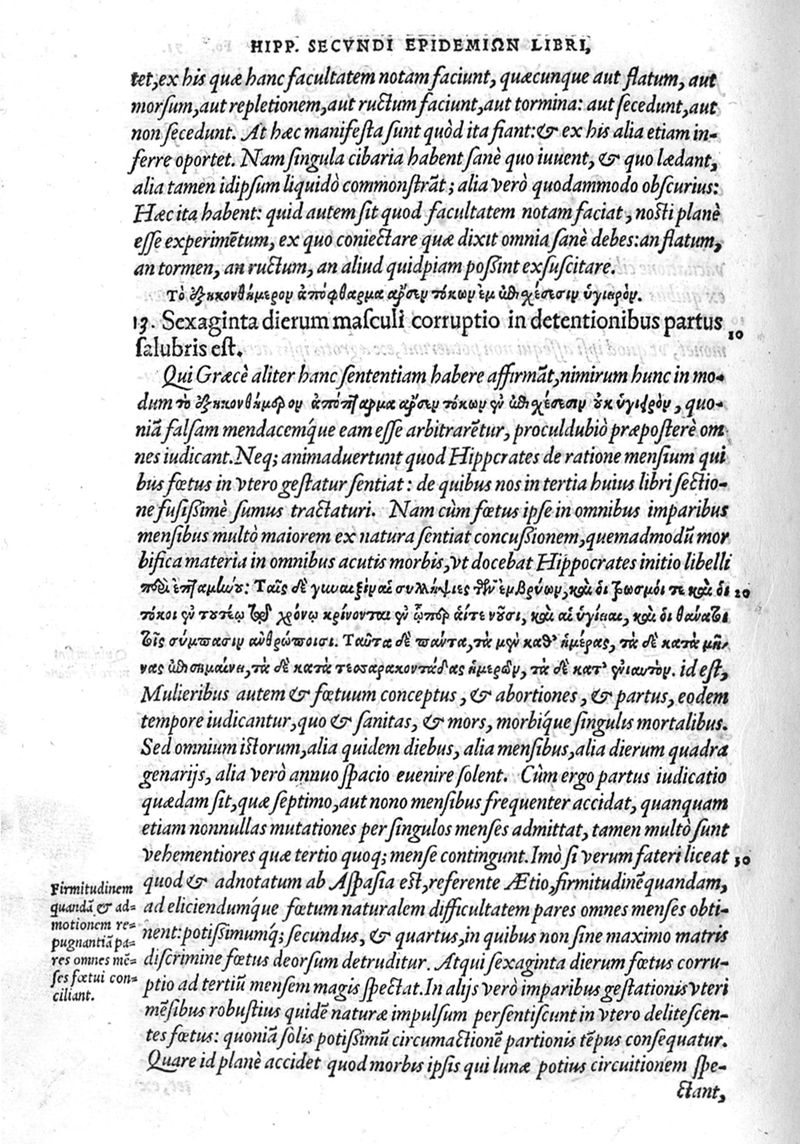 HIPP. SECVNDI EPIDEMIΩN LIBRI,
tet, ex his quæ hanc facultatem notam faciunt, quæcunque aut flatum, aut
morsum, aut repletionem, aut ructum faciunt, aut tormina: aut secedunt, aut
non secedunt. At hæc manifesta sunt quòd ita fiant: & ex his alia etiam in-
ferre oportet. Nam singula cibaria habent sanè quo iuuent, & quo lædant,
alia tamen idipsum liquidò commonstrāt; alia verò quodammodo obscurius:
Hæc ita habent: quid autem sit quod facultatem notam faciat, nosti planè
esse experimētum, ex quo coniectare quæ dixit omnia sanè debes: an flatum,
an tormen, an ructum, an aliud quidpiam possint exsuscitare.
Τὸ ἑξηκονθήμερον ἀπόφθαρμα ἄρσεν τόκων ἐμ ἐπισχέσεσιν ὑγιηρόν.
13. Sexaginta dierum masculi corruptio in detentionibus partus
10
salubris est.
Qui Græcè aliter hanc sententiam habere affirmāt, nimirum hunc in mo-
dum τὸ ἑξηκονθήμερον ἀπόπταρμα ἄρσεν τόκων ἐν ἐπισχέσεσιν οὐκ ὑγιηρὸν, quo-
niā falsam mendacemque eam esse arbitrarētur, proculdubiò præposterè om
nes iudicant. Neq; animaduertunt quod Hippcrates de ratione mensium qui
bus fœtus in vtero gestatur sentiat: de quibus nos in tertia huius libri sectio-
ne fusissimè sumus tractaturi. Nam cùm fœtus ipse in omnibus imparibus
mensibus multò maiorem ex natura sentiat concussionem, quemadmodū mor
bifica materia in omnibus acutis morbis, vt docebat Hippocrates initio libelli
περὶ ἑπταμήνου: Ταῖς δὲ γυναιξὶν αἱ συλλήψιες τῶν ἐμβρύων, καὶ οἱ τρωσμοί τε καὶ οἱ
20
τόκοι ἐν τουτέῳ τῷ χρόνῳ κρίνονται ἐν ᾧπερ αἵτε νοῦσι, καὶ αἱ ὑγίειαι, καὶ οἱ θάνατοι
τοῖς σύμπασιν ἀνθρώποισι. Ταῦτα δὲ πάντα, τὰ μὲν καθ' ἡμέρας, τὰ δὲ κατὰ μῆ-
νας ἐπισημαίνει, τὰ δὲ κατὰ τεσσαρακοντάδας ἡμερῶν, τὰ δὲ κατ' ἐνιαυτόν. id est,
Mulieribus autem & fœtuum conceptus, & abortiones, & partus, eodem
tempore iudicantur, quo & sanitas, & mors, morbique singulis mortalibus.
Sed omnium istorum, alia quidem diebus, alia mensibus, alia dierum quadra
genarijs, alia verò annuo spacio euenire solent. Cùm ergo partus iudicatio
quædam sit, quæ septimo, aut nono mensibus frequenter accidat, quanquam
etiam nonnullas mutationes per singulos menses admittat, tamen multò sunt
vehementiores quæ tertio quoq; mense contingunt. Imò si verum fateri liceat
30
quod & adnotatum ab Aspasia est, referente Ætio, firmitudinē quandam,
ad eliciendumque fœtum naturalem difficultatem pares omnes menses obti-
nent: potissimumq; secundus, & quartus, in quibus non sine maximo matris
discrimine fœtus deorsum detruditur. Atqui sexaginta dierum fœtus corru-
ptio ad tertiū mensem magis spectat. In alijs verò imparibus gestationis vteri
mēsibus robustius quidē naturæ impulsum persentiscunt in vtero delitescen-
tes fœtus: quoniā solis potissimū circumactionē partionis tēpus consequatur.
Quare id planè accidet quod morbis ipsis qui lunæ potius circuitionem spe-
ctant,
Firmitudinem
quandā & ad-
motionem re-
pugnantiā pa-
res omnes mē-
ses fœtui con-
ciliant.